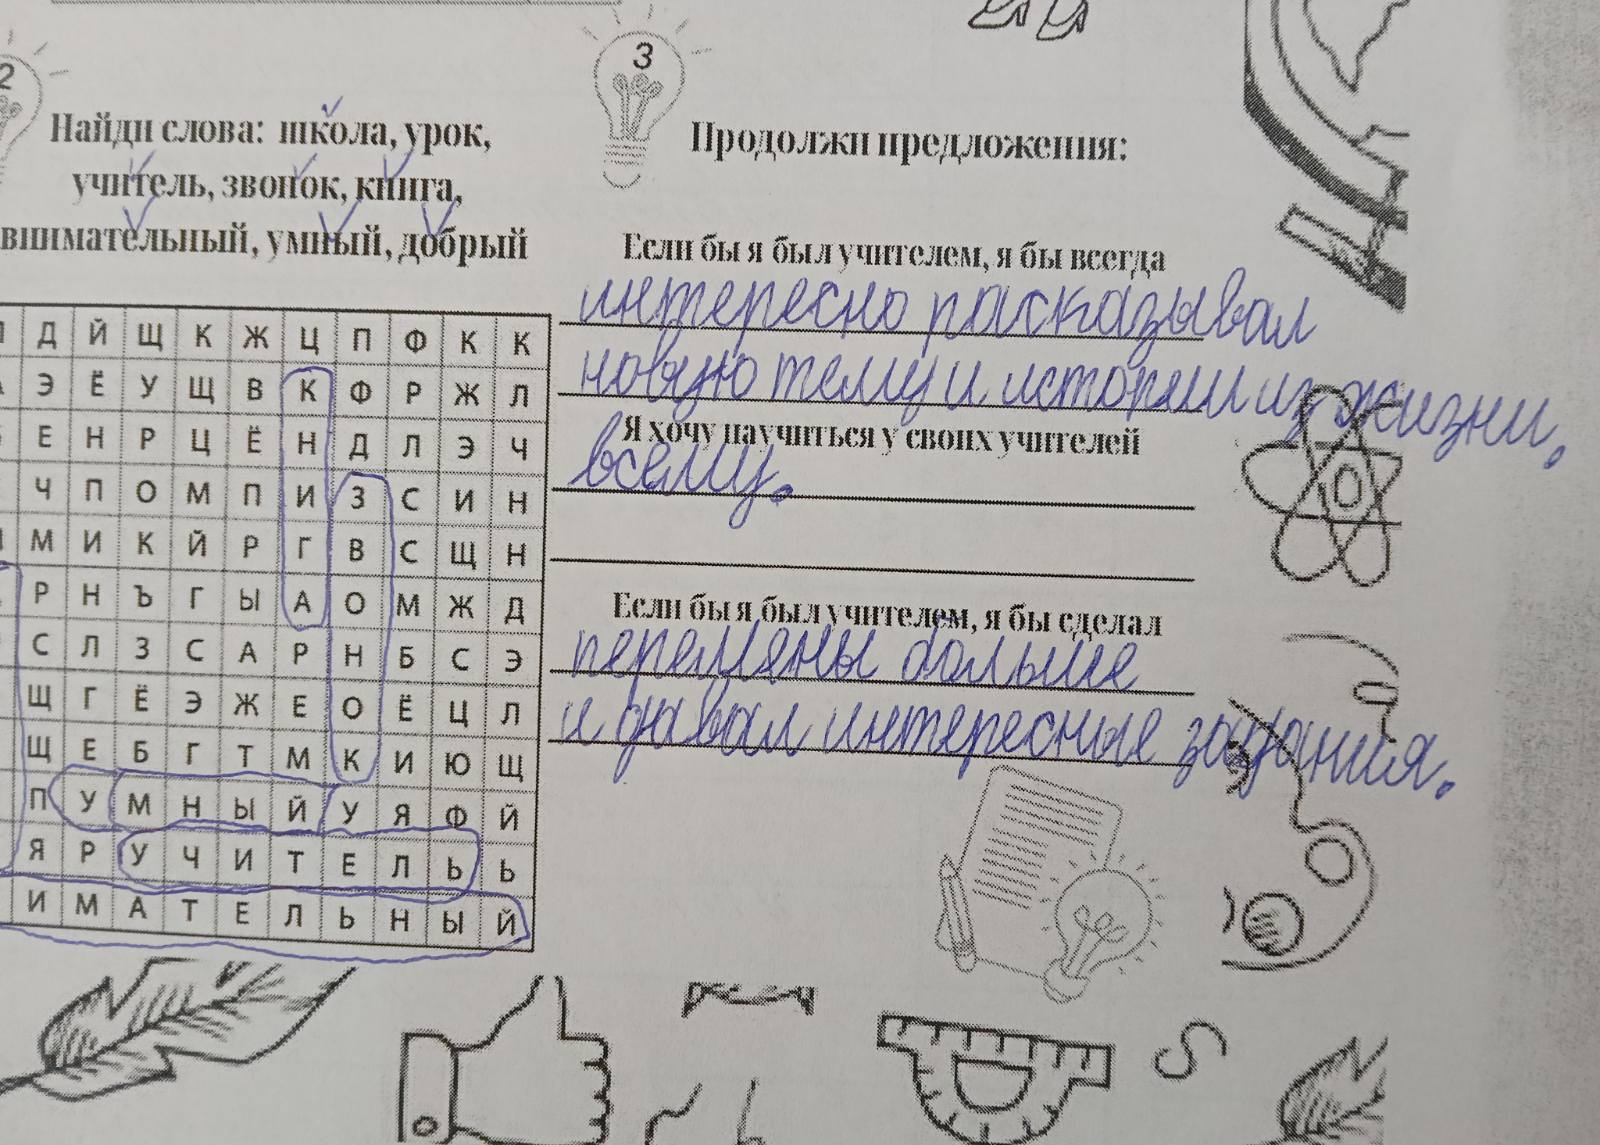 2
Найди слова: школа, урок,
учитель, звонок, книга,
внимательный, умный, добрый
Д Й Щ К Ж Ц П Ф К К
Э Ё У Щ В К Ф Р Ж Л
Е Н Р Ц Ё Н Д Л Э Ч
Ч П О М П И З С И Н
М И К Й Р Г В С Щ Н
Р Н Ъ Г Ы А О М Ж Д
С Л З С А Р Н Б С Э
Щ Г Ё Э Ж Е О Ё Ц Л
Щ Е Б Г Т М К И Ю Щ
П У М Н Ы Й У Я Ф Й
Я Р У Ч И Т Е Л Ь Ь
И М А Т Е Л Ь Н Ы Й
3
Продолжи предложения:
Если бы я был учителем, я бы всегда
интересно расказывал
новую тему и истории из жизни.
Я хочу научиться у своих учителей
всему.
Если бы я был учителем, я бы сделал
перемены больше
и давал интересные задания.